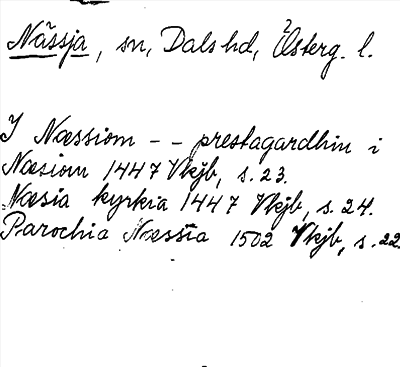 Nässja, sn, Dals hd, Österg. l.
I Næssiom - - prestagardhin i
Næsiom 1447 Vkjb, s. 23.
Næsia kyrkia 1447 Vkjb, s. 24.
Parochia Næssia 1502 Vkjb, s. 22.